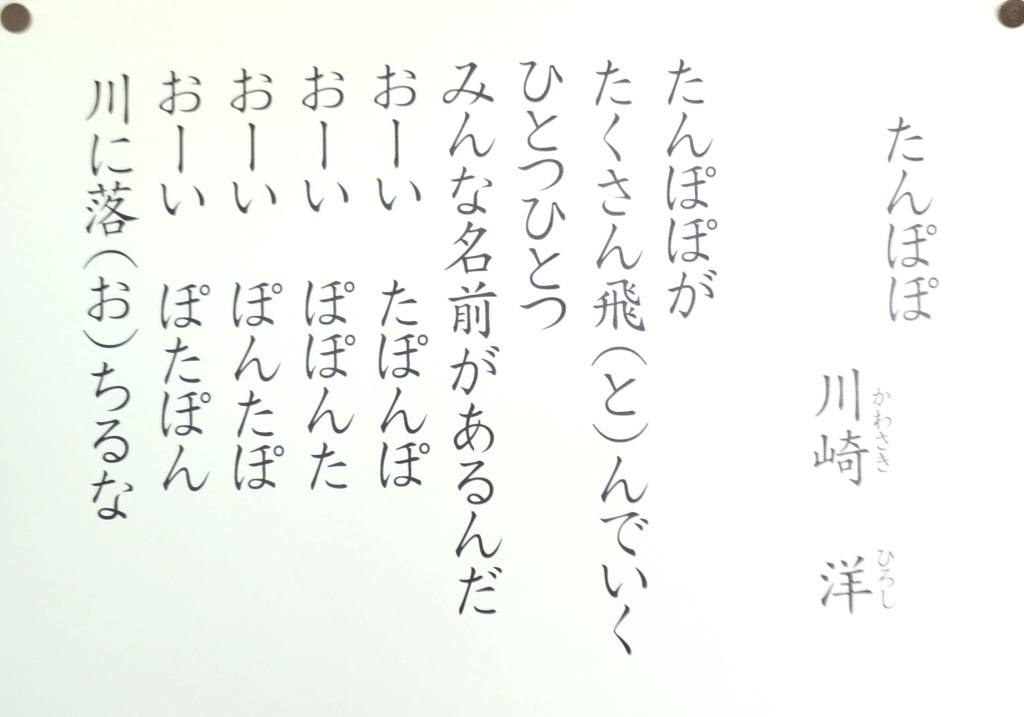 たんぽぽ
川崎 洋
かわさき ひろし
たんぽぽが
たくさん飛(と)んでいく
ひとつひとつ
みんな名前があるんだ
おーい たぽんぽ
おーい ぽぽんた
おーい ぽんたぽ
おーい ぽたぽん
川に落(お)ちるな